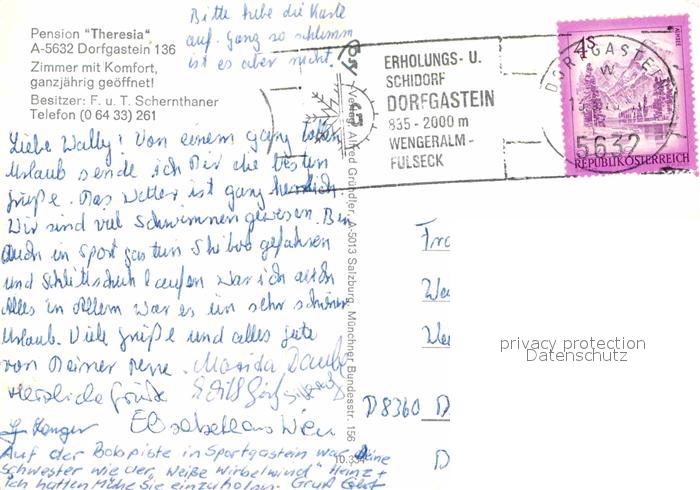 Pension "Theresia"
A-5632 Dorfgastein 136
Zimmer mit Komfort,
ganzjährig geöffnet!
Besitzer: F. u. T. Schernthaner
Telefon (0 64 33) 261
Bitte hebe die Karte
auf. Ganz so schlimm
ist es aber nicht.
ERHOLUNGS- U.
SCHIDORF
DORFGASTEIN
835 - 2000 m
WENGERALM-
FULSECK
DORFGASTEIN
5632
4 S
ALMSEE
REPUBLIK ÖSTERREICH
Liebe Wally! Von einem ganz tollen
Urlaub sende ich Dir die besten
Grüße. Das Wetter ist ganz herrlich.
Wir sind viel Schwimmen gewesen. Bin
auch in Sportgastein Skibob gefahren
und Schlittschuh laufen war ich auch
Alles in Allem war es ein sehr schöner
Urlaub. Viele Grüße und alles gute
von Deiner
Herzliche Grüße
Elisabeth aus Wien
Auf der Bobpiste in Sportgastein war Deine
Schwester wie der "Weiße Wirbelwind" Heinz +
ich hatten Mühe sie einzuholen. Gruß
Verlag Alfred Gründler, A-5013 Salzburg, Münchner Bundesstr. 156
10.334
D 8360 D
privacy protection
Datenschutz